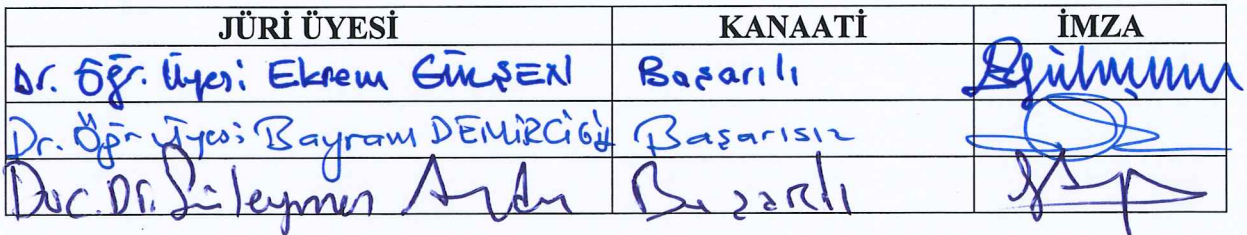 JÜRİ ÜYESİ KANAATİ İMZA
Dr. Öğr. Üyesi Ekrem Başarılı
Dr. Öğr. Üyesi Bayram DEMİRCİGİL Başarısız
Doç. Dr. Süleyman Başarılı